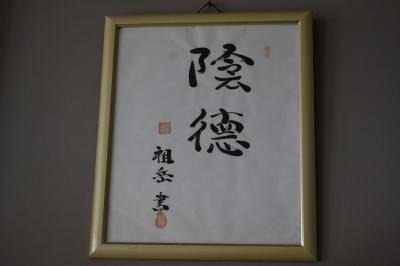 陰德
祖岳書